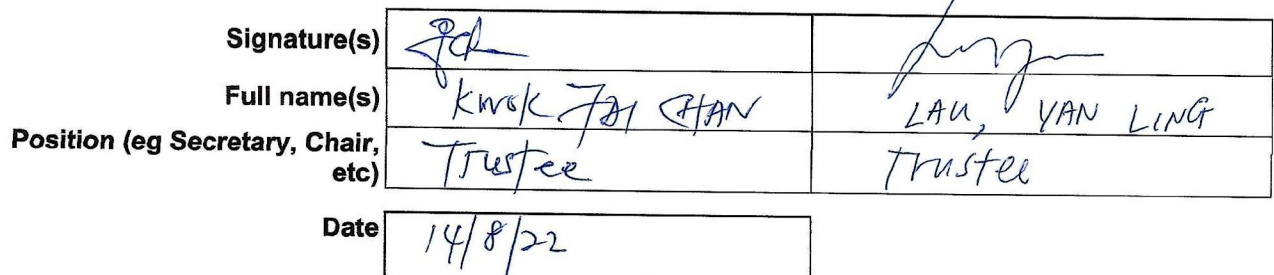 Signature(s)
Full name(s) Kwok FAI CHAN LAU, YAN LING
Position (eg Secretary, Chair, etc) Trustee Trustee
Date 14/8/22